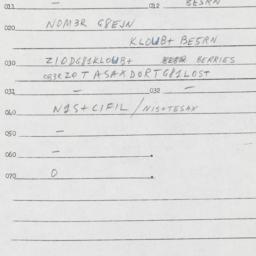 011 — 012 BESRN
020 NOM3R G8EJN
KLOUB+ BESRN
030 ZIODG81KLOUB+ BERRIES
TASAXDORTG81LOST
031 — 032 —
040 N1S+CIFIL / NIS+TESAX
050 —
060 —
070 0